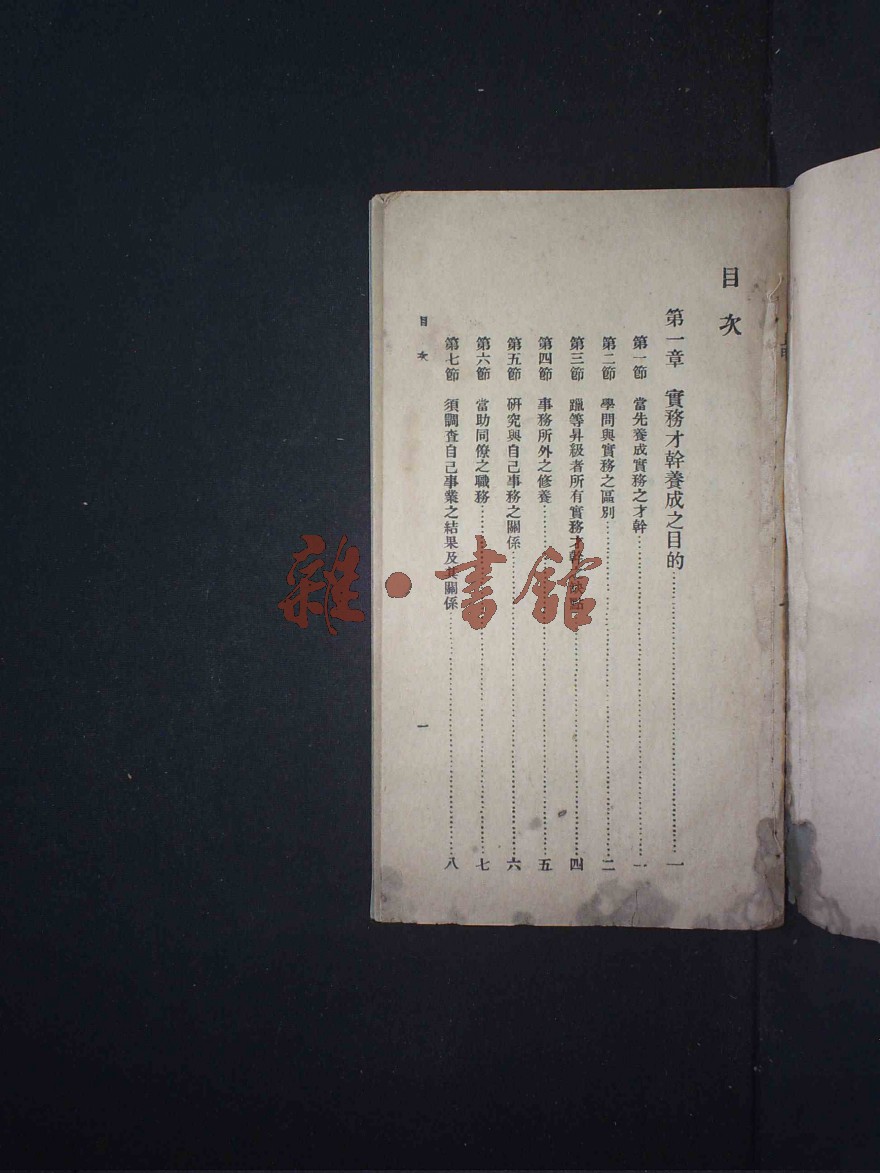 目次
第一章 實務才幹養成之目的……一
第一節 當先養成實務之才幹……一
第二節 學問與實務之區別……二
第三節 躐等昇級者所有實務才幹 缺點……四
第四節 事務所外之修養……五
第五節 研究與自己事務之關係……六
第六節 當助同僚之職務……七
第七節 須調查自己事業之結果及其關係……八
目次 一
雜·書館